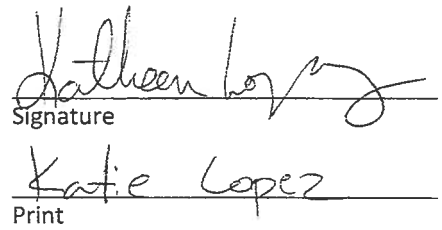 Kathleen Lopez
Signature
Katie Lopez
Print